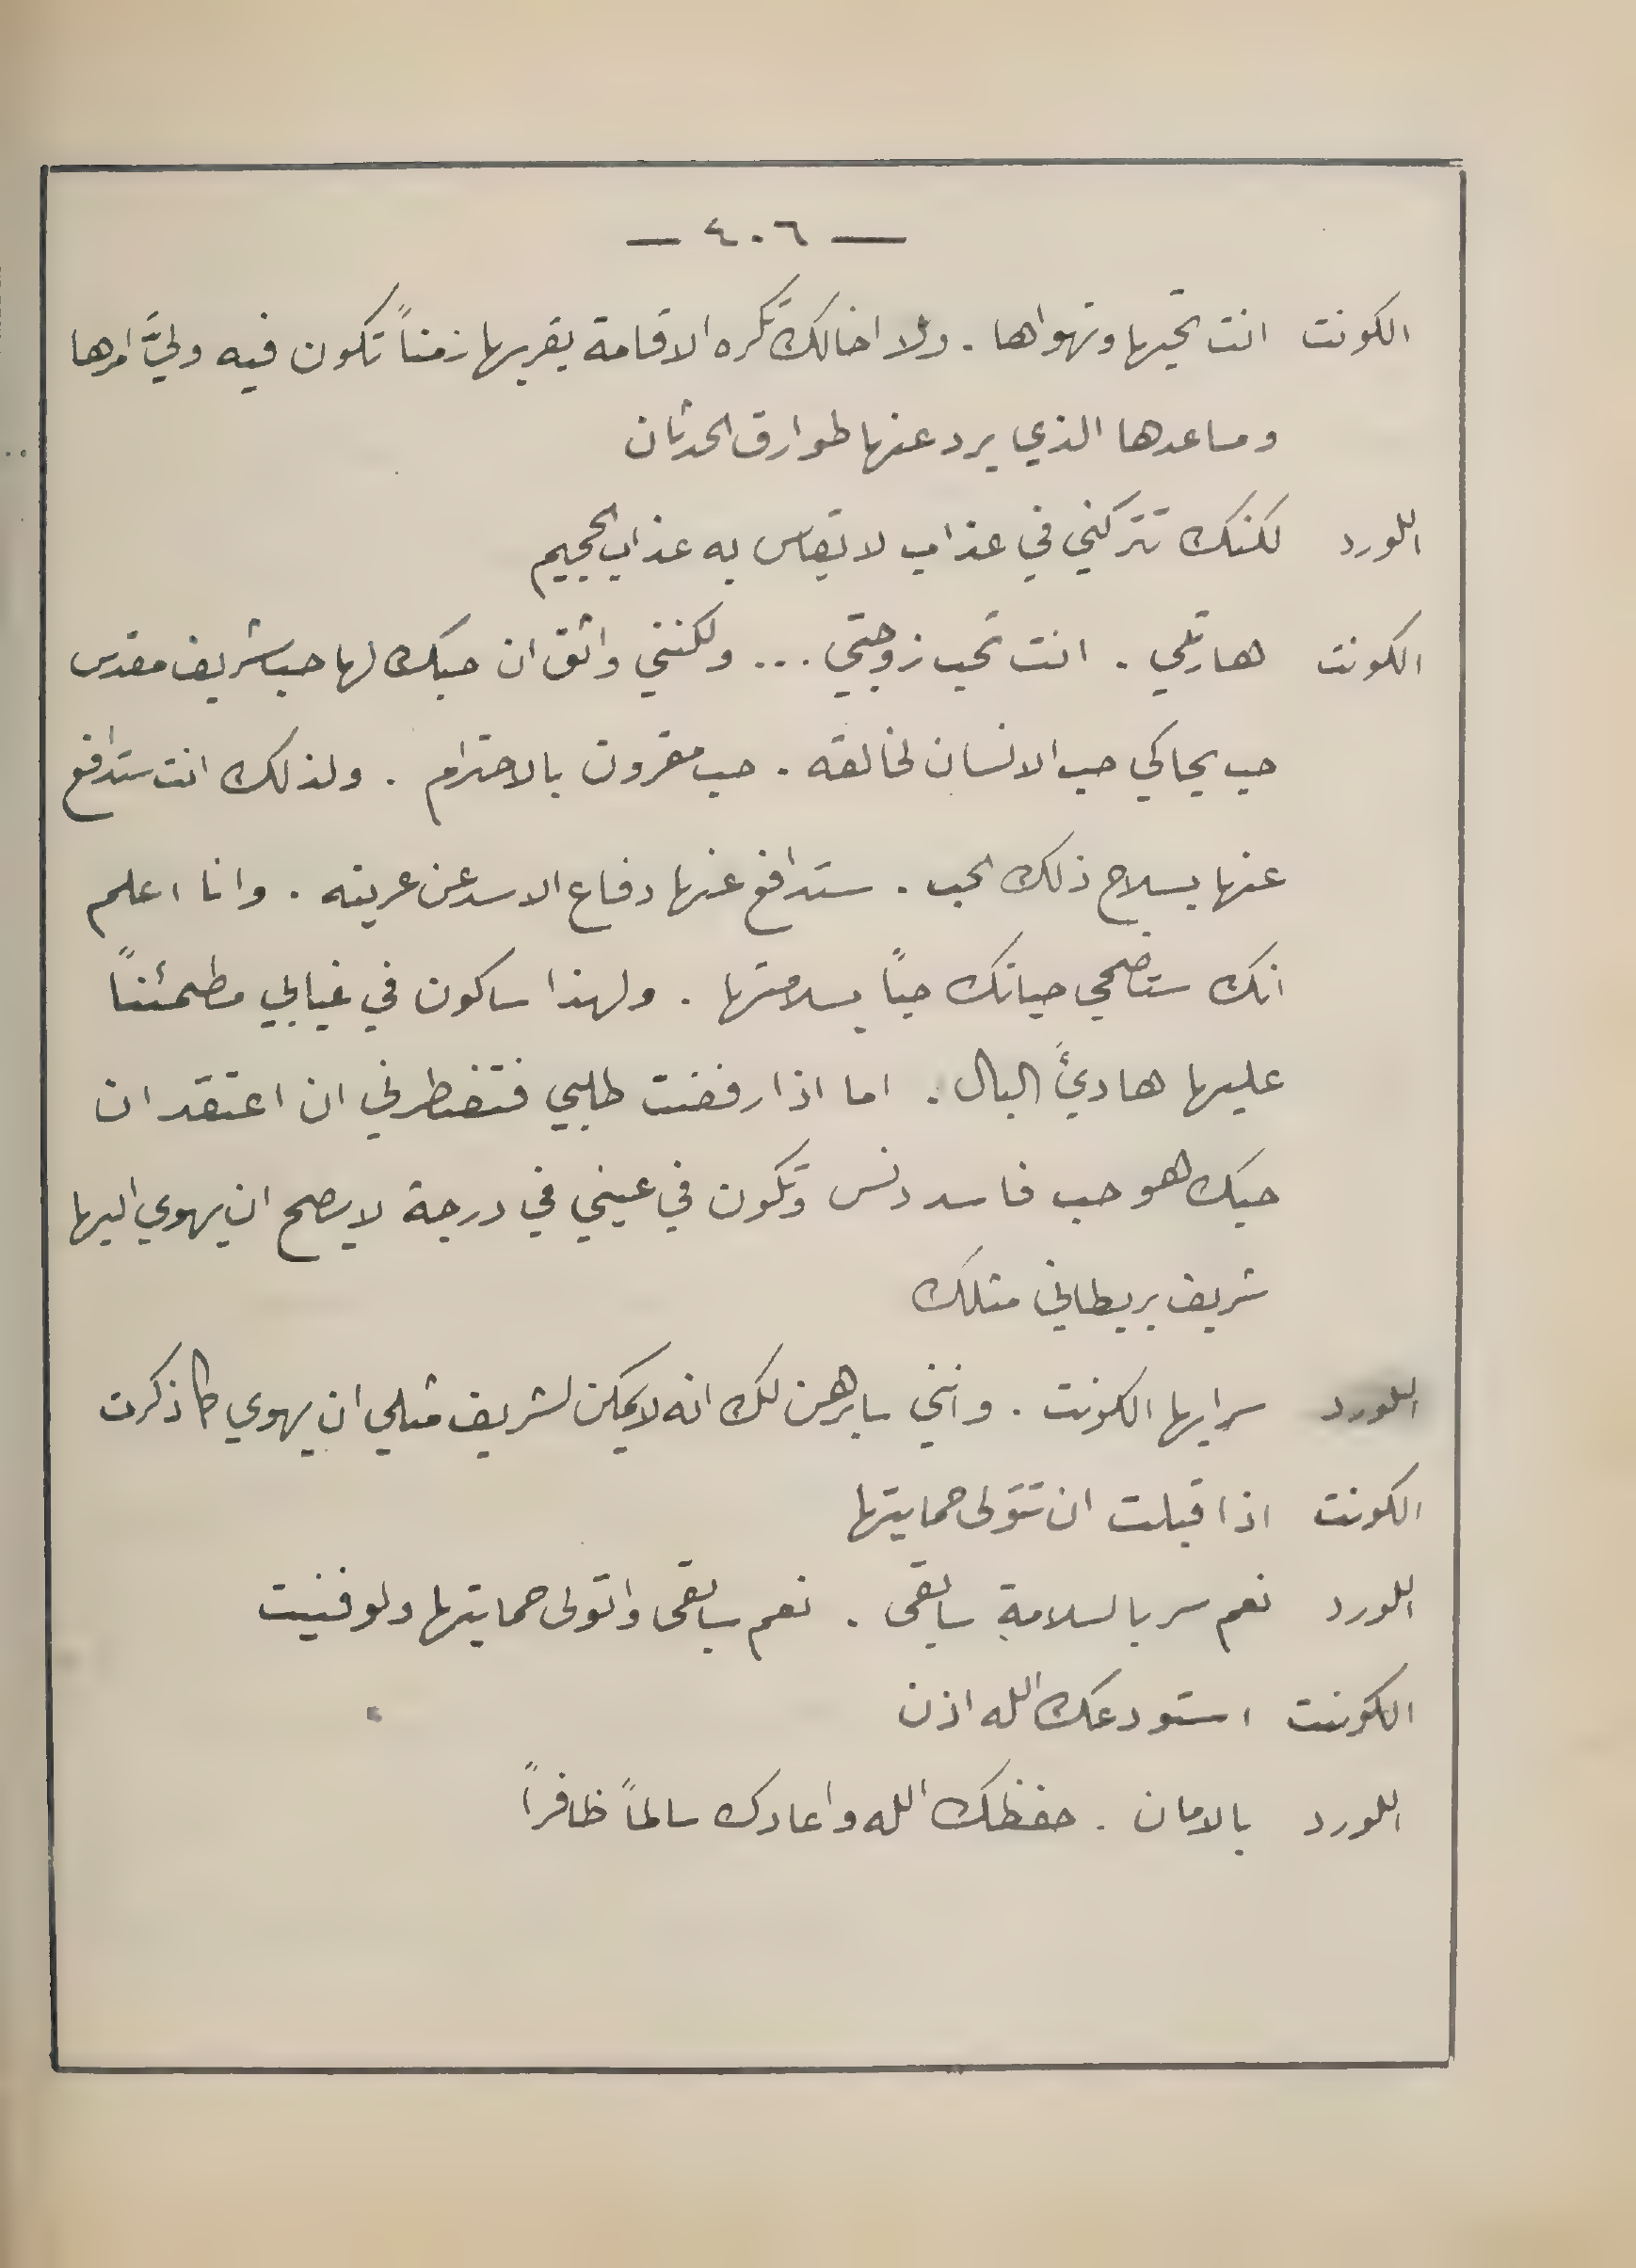 — ٤٠٦ —
الكونت انت تحبها وتهواها . ولا اخالك تكره الاقامة بقربها زمناً تكون فيه وليَّ امرها
ومساعدها الذي يرد عنها طوارق الحدثان
اللورد لكنك تتركني في عذاب لا يقاس به عذاب الجحيم
الكونت هارتلي . انت تحب زوجتي ... ولكنني واثق ان حبك لها حب شريف مقدس
حب يحاكي حب الانسان لخالقه . حب مقرون بالاحترام . ولذلك انت ستدافع
عنها بسلاح ذلك الحب . ستدافع عنها دفاع الاسد عن عرينه . وانا اعلم
انك ستضحي حياتك حباً بسلامتها . ولهذا ساكون في غيابي مطمئناً
عليها هادئً البال . اما اذا رفضت طلبي فتضطرني ان اعتقد ان
حبك هو حب فاسد دنس وتكون في عيني في درجة لا يصح ان يهوي اليها
شريف بريطاني مثلك
اللورد سر ايها الكونت . وانني سابرهن لك انه لا يمكن لشريف مثلي ان يهوي كما ذكرت
الكونت اذا قبلت ان تتولى حمايتها
اللورد نعم سر بالسلامة سابقى . نعم سابقى واتولى حمايتها ولو فنيت
الكونت استودعك الله اذن
اللورد بالامان . حفظك الله واعادك سالماً ظافراً